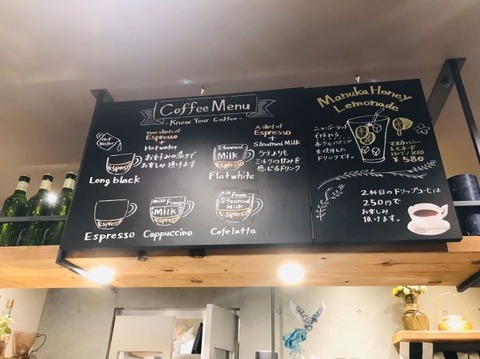 Coffee Menu
- Know Your Coffee -
Hot
water
Espresso
Two shots of
Espresso
+
Hotwater
お好みの濃さで
お楽しみ頂けます
Long black
Steamed
Milk
Espresso
A shot of
Espresso
+
Steamed Milk
ラテよりも
ミルクの甘みを
感じるドリンク
Flatwhite
Espresso
Espresso
Milk Foam
Milk
Espresso
Cappuccino
Milk Foam
Steamed
Milk
Espresso
Cafelatte
Manuka Honey
Lemonade
ニュージーランドで
ドリンクです。
マヌカハニー
レモネード
HOT / ICED
¥580
2杯目のドリップコーヒーは
250円で
お楽しみ
頂けます。